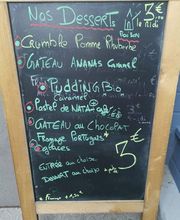 Nos Desserts
3€
Crumble Pomme Rhubarbe
Gâteau Ananas Caramel
Pudding Bio
Caramel
Pastel de Nata
Gâteau au Chocolat
Fromage Portugais
glaces
3€
Entrée au choix
Dessert au choix